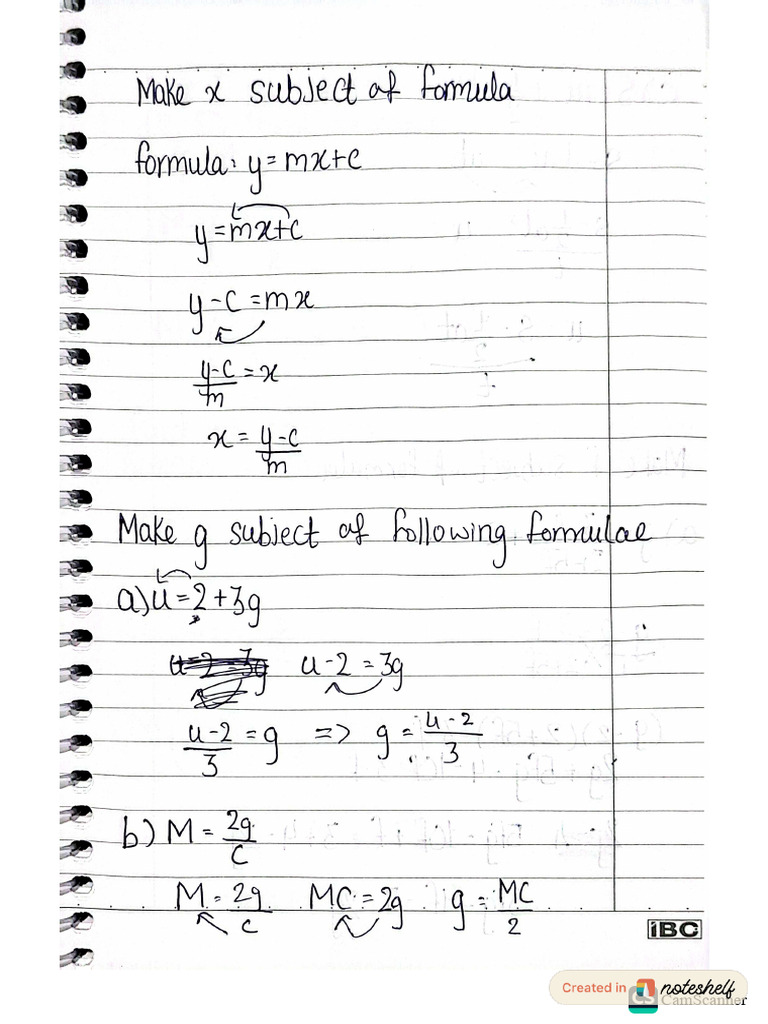 Make x subject of formula
formula: y = mx+c
y = mx+c
y - c = mx
y-c/m = x
x = y-c/m
Make g subject of following formulae
a) u = 2 + 3g
u - 2 = 3g
u-2/3 = g => g = u-2/3
b) M = 2g/c
M = 2g/c MC = 2g g = MC/2
iBC
Created in noteshelf
CS CamScanner